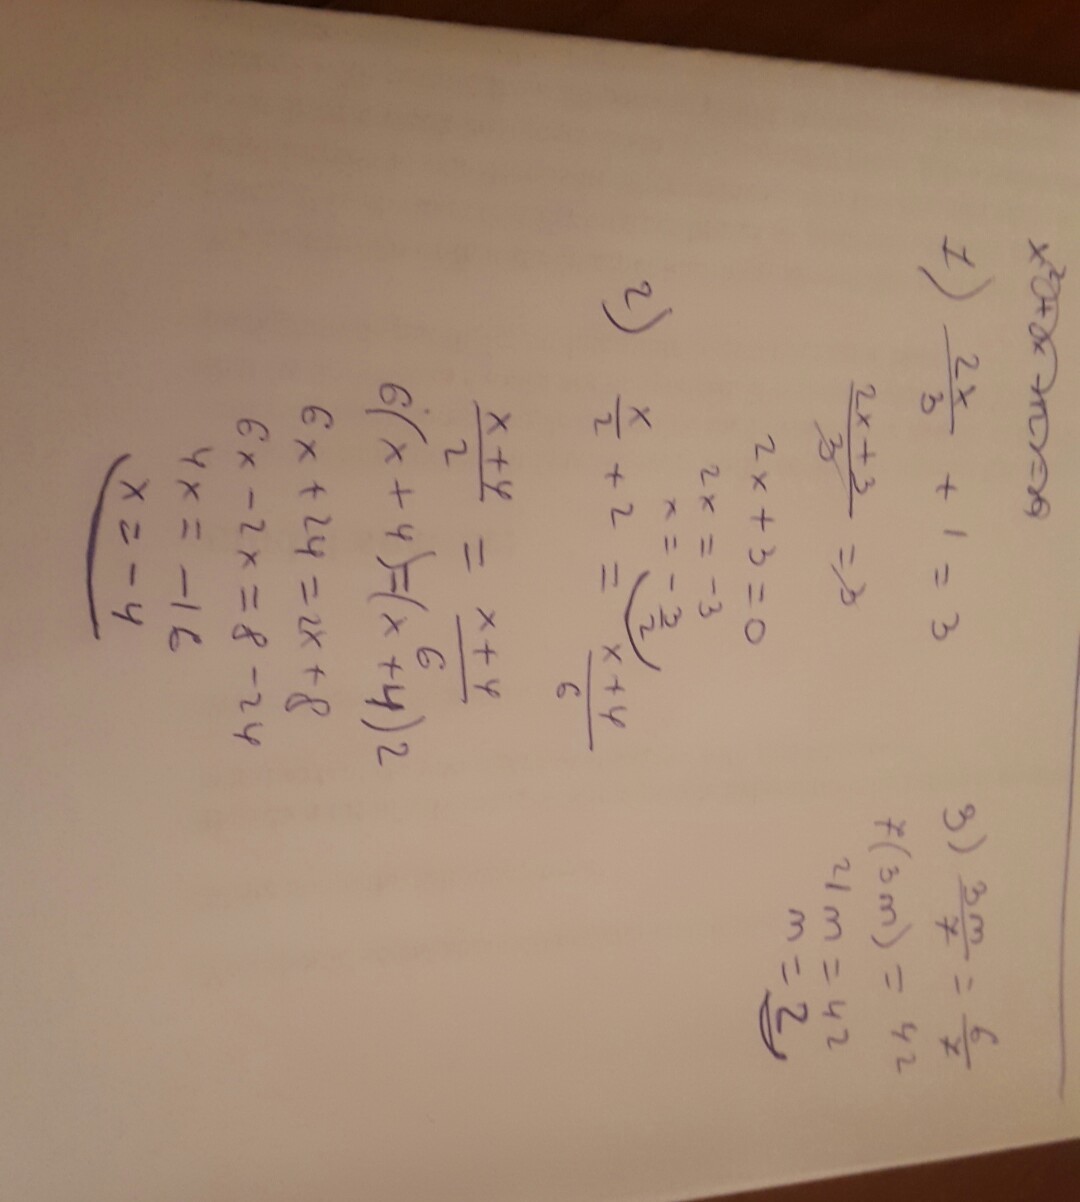 1) 2x/3 + 1 = 3
(2x+3)/3 = 3
2x + 3 = 0
2x = -3
x = -3/2
2) x/2 + 2 = (x+4)/6
(x+4)/2 = (x+4)/6
6(x+4) = (x+4)2
6x + 24 = 2x + 8
6x - 2x = 8 - 24
4x = -16
x = -4
3) 3m/7 = 6/7
7(3m) = 42
21m = 42
m = 2